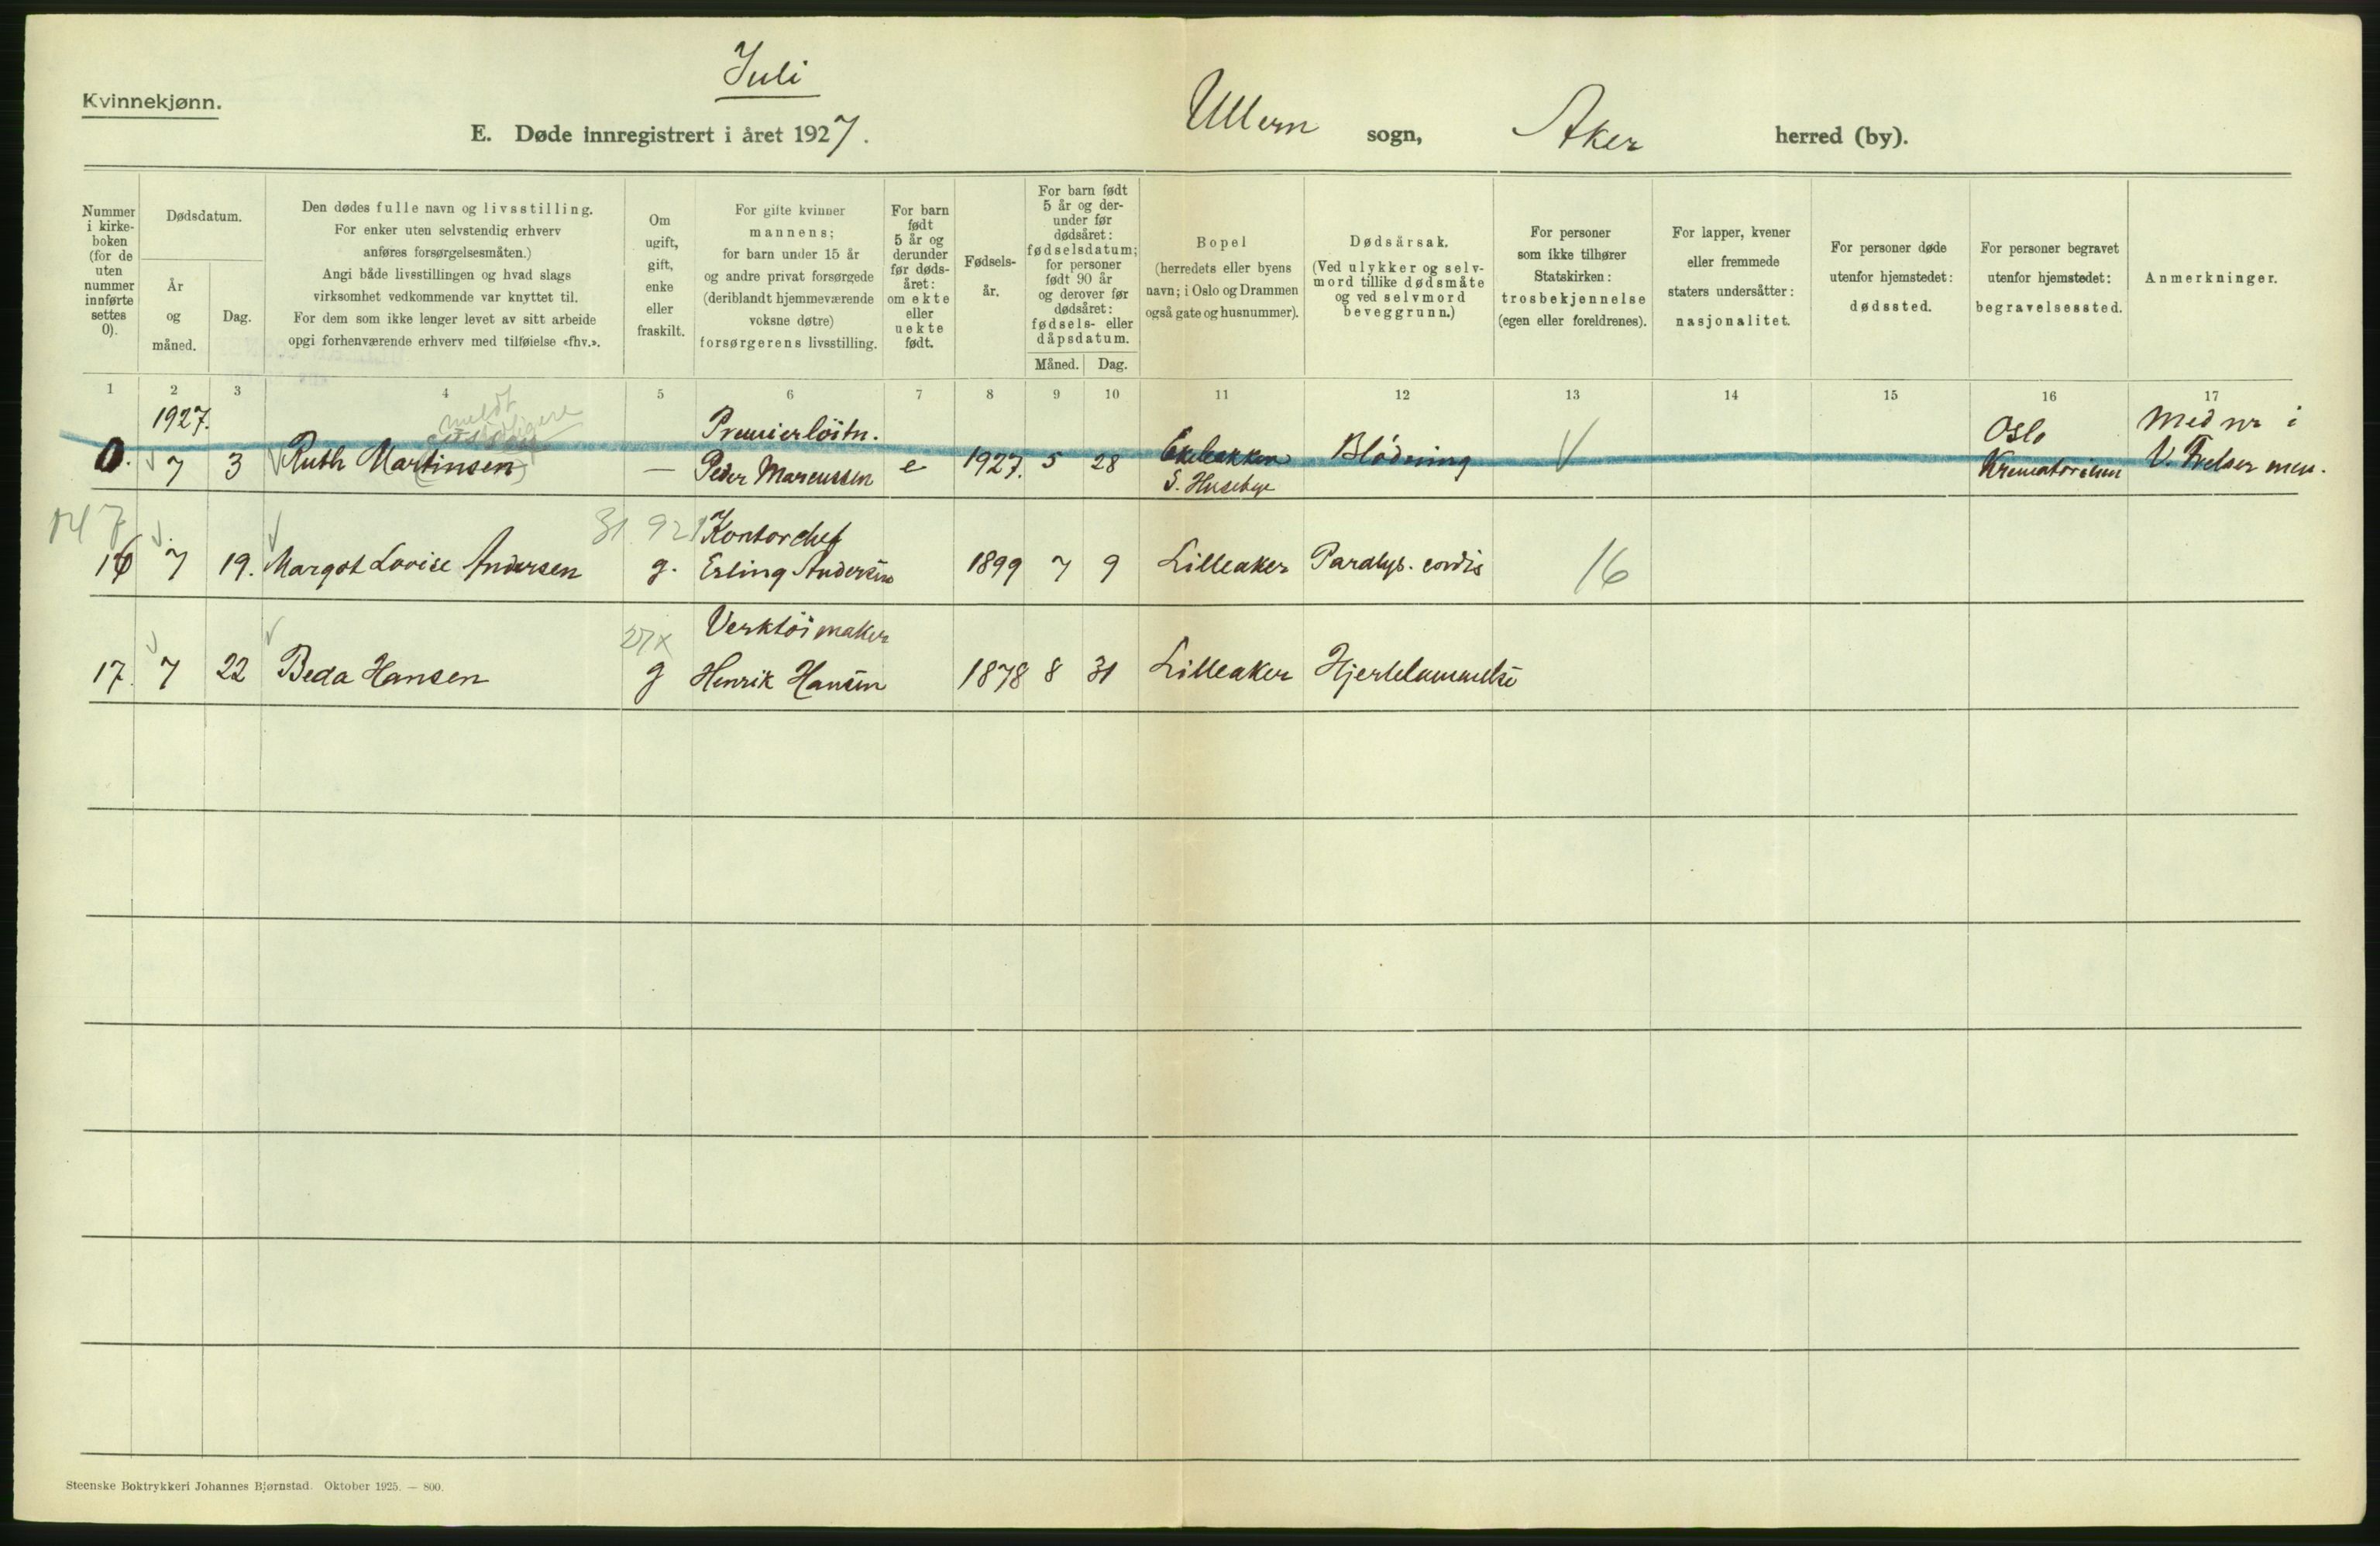 Juli
Kvinnekjønn.
E. Døde innregistrert i året 1927.
Ullern sogn, Aker herred (by).
Nummer i kirke- boken (for de uten nummer innførte settes 0).
Dødsdatum.
År og måned.
Dag.
Den dødes fulle navn og livsstilling.
For enker uten selvstendig erhverv
anføres forsørgelsesmåten.)
Angi både livsstillingen og hvad slags
virksomhet vedkommende var knyttet til.
For dem som ikke lenger levet av sitt arbeide
opgi forhenværende erhverv med tilføielse «fhv.».
Om ugift, gift, enke eller fraskilt.
For gifte kvinner
mannens;
for barn under 15 år
og andre privat forsørgede
(deriblandt hjemmeværende
voksne døtre)
forsørgerens livsstilling.
For barn født 5 år og derunder før døds- året: om ekte eller uekte født.
Fødsels- år.
For barn født
5 år og der-
under før
dødsåret:
fødselsdatum;
for personer
født 90 år
og derover før
dødsåret:
fødsels- eller
dåpsdatum.
Måned. Dag.
Bopel
(herredets eller byens
navn; i Oslo og Drammen
også gate og husnummer).
Dødsårsak.
(Ved ulykker og selv-
mord tillike dødsmåte
og ved selvmord
beveggrunn.)
For personer
som ikke tilhører
Statskirken:
trosbekjennelse
(egen eller foreldrenes).
For lapper, kvener
eller fremmede
staters undersåtter:
nasjonalitet.
For personer døde
utenfor hjemstedet:
dødssted.
For personer begravet
utenfor hjemstedet:
begravelsessted.
Anmerkninger.
1 2 3 4 5 6 7 8 9 10 11 12 13 14 15 16 17
1927. meldt tidligere Premierlöitn. Oslo Med nr i
0. 7 3 Ruth Martinsen — Peder Marcussen e 1927. 5 28 Ekeleakken Blödning Krematorium V. Frelser men.
S. Husebye
147 31 921 Kontorchef
16 7 19. Margot Lovise Andersen g. Erling Andersen 1899 7 9 Lilleaker Paralys. cordis 16
27x Verktöimaker
17. 7 22 Beda Hansen g Henrik Hansen 1878 8 31 Lilleaker Hjertelammelse
Steenske Boktrykkeri Johannes Bjørnstad. Oktober 1925. — 800.